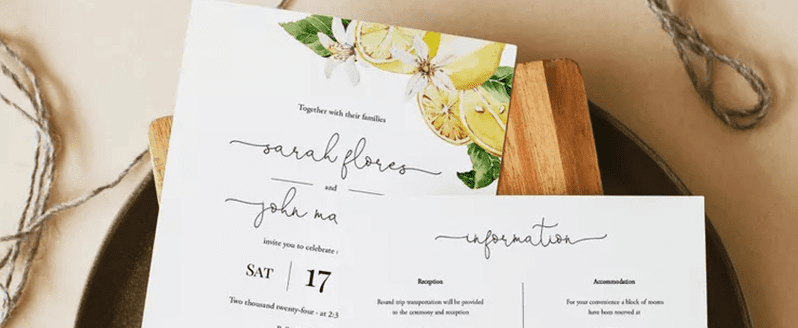 Together with their families
sarah flores
and
john
invite you to celebrate
SAT | 17
Two thousand twenty-four - at 2:3
information
Reception
Round trip transportation will be provided
to the ceremony and reception
Accommodation
For your convenience a block of rooms
have been reserved at